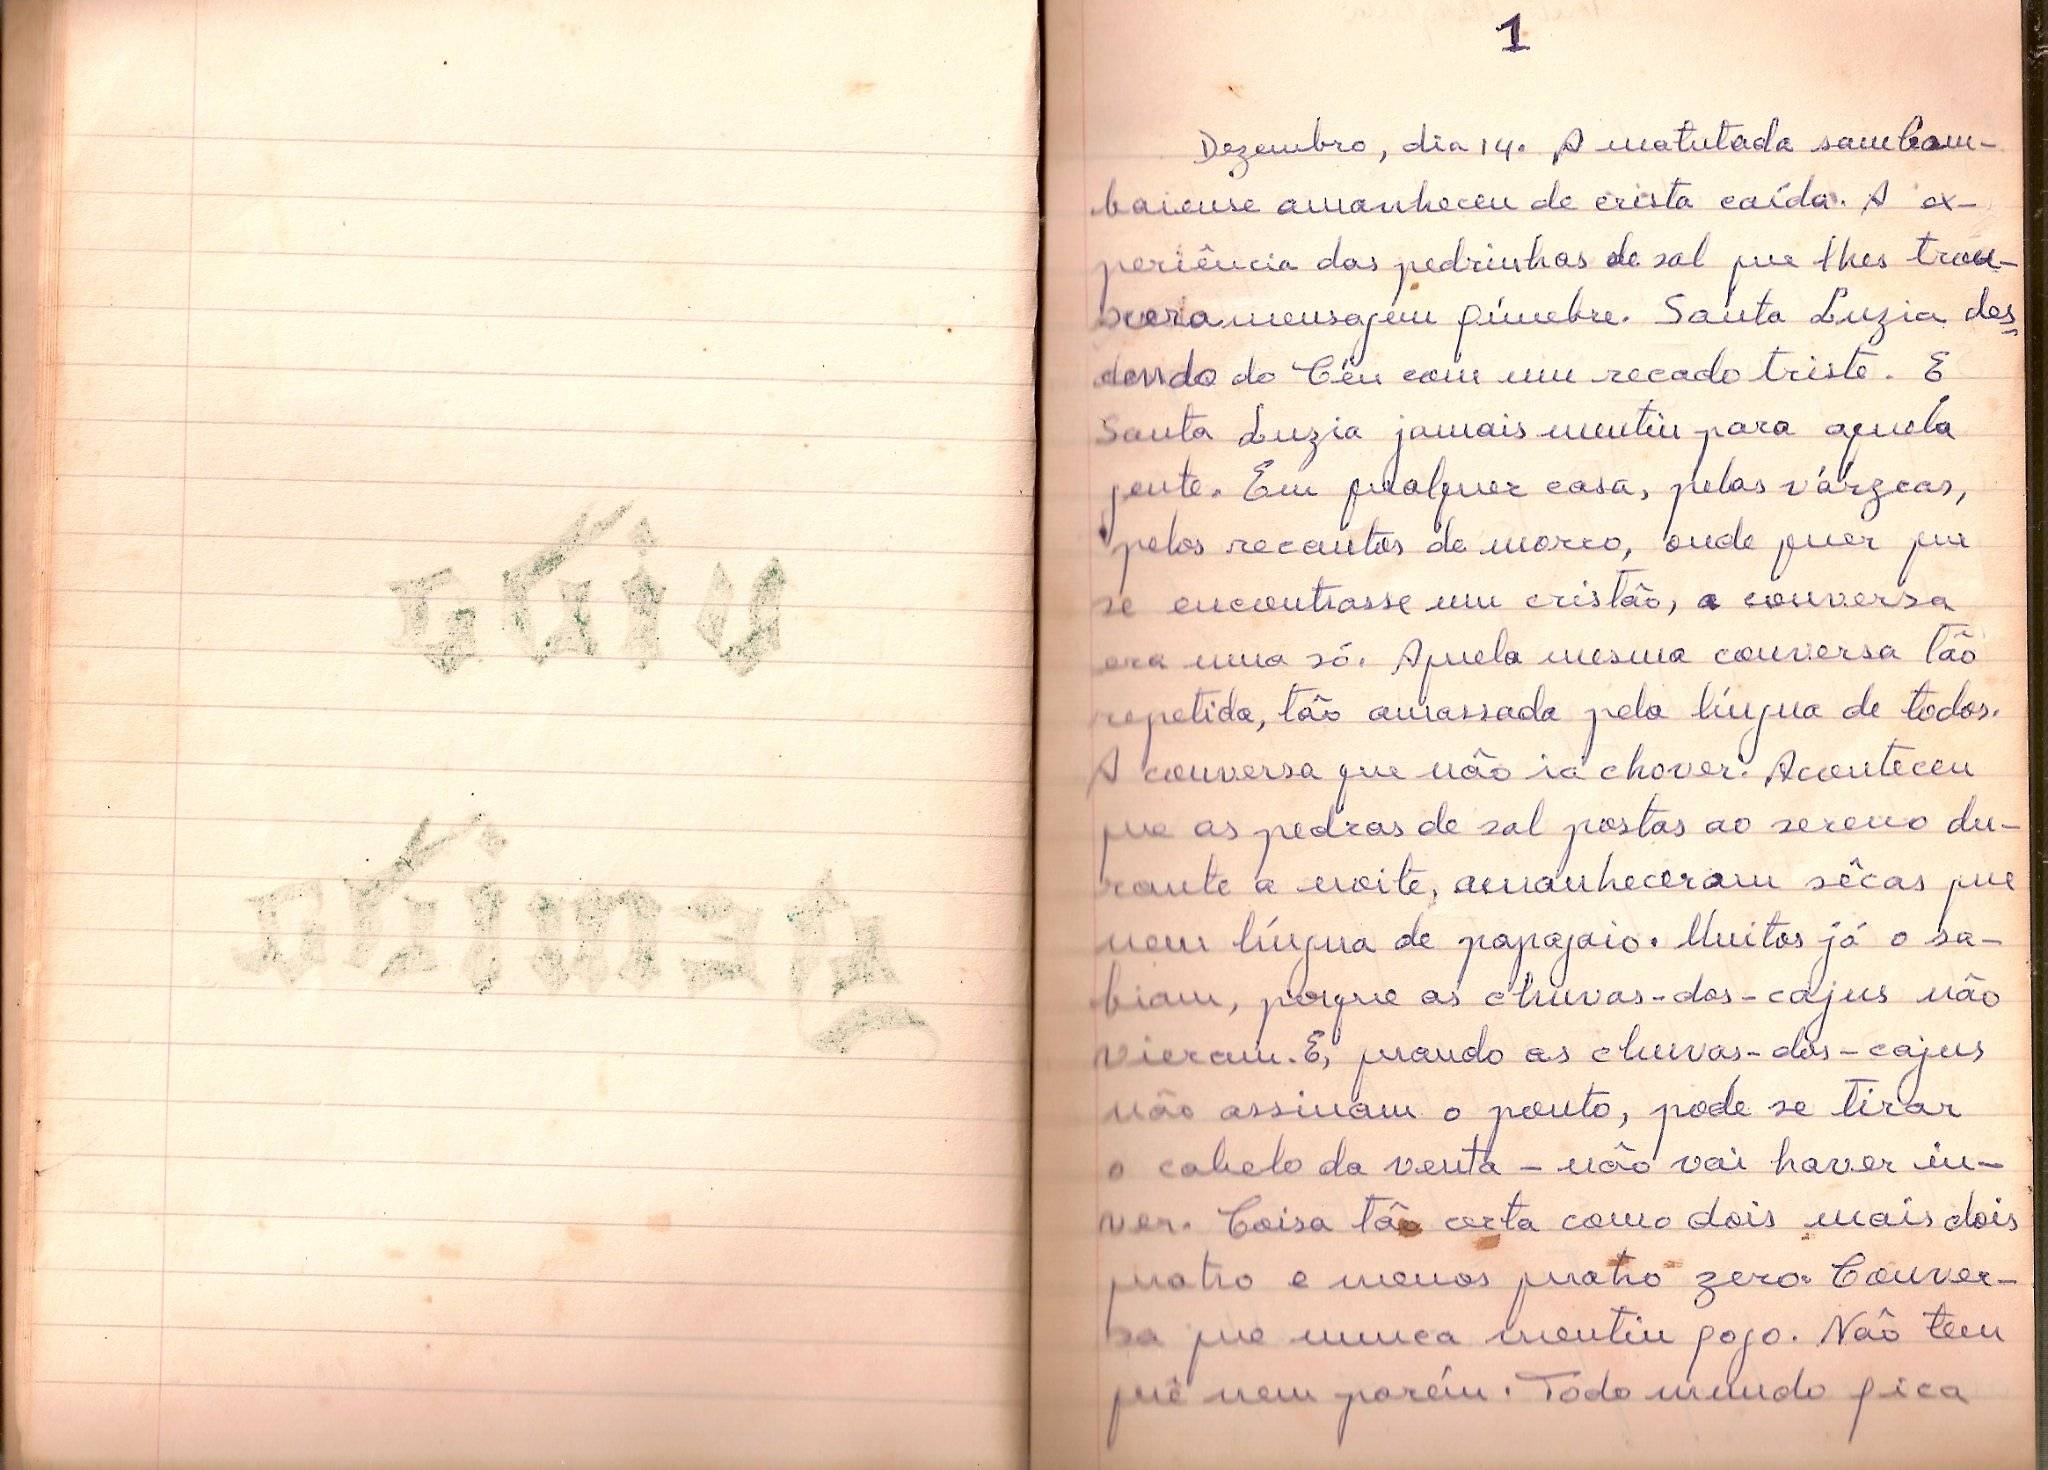 1
Dezembro, dia 14. A matutada sambam-
baiense amanheceu de crista caída. A ex-
periência das pedrinhas de sal que lhes trou-
xera mensagem fúnebre. Santa Luzia des=
cendo do Céu com um recado triste. E
Santa Luzia jamais mentiu para aquela
gente. Em qualquer casa, pelas várzeas,
pelos recantos de morro, onde quer que
se encontrasse um cristão, a conversa
era uma só. Aquela mesma conversa tão
repetida, tão amassada pela língua de todos.
A conversa que não ia chover. Aconteceu
que as pedras de sal postas ao sereno du-
rante a noite, amanheceram sêcas que
nem língua de papagaio. Muitos já o sa-
biam, porque as chuvas-dos-cajus não
vieram. E, quando as chuvas-dos-cajus
não assinam o ponto, pode se tirar
o cabelo da venta – não vai haver in-
ver. Coisa tão certa como dois mais dois
quatro e menos quatro zero. Conver-
sa que nunca mentiu fogo. Não tem
quê nem porém. Todo mundo fica